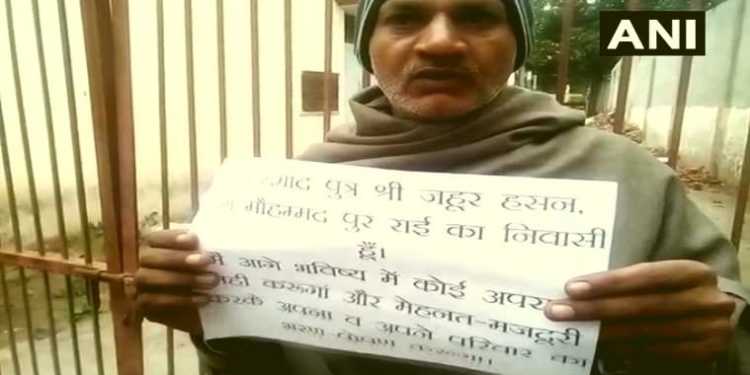 ANI
पुत्र श्री जहूर हसन,
मौहम्मद पुर राई का निवासी
हूँ।
मै आगे भविष्य में कोई अपरा
नही करूगां और मेहनत-मजदूरी
करके अपना व अपने परिवार का
भरण-पोषण करूगा।